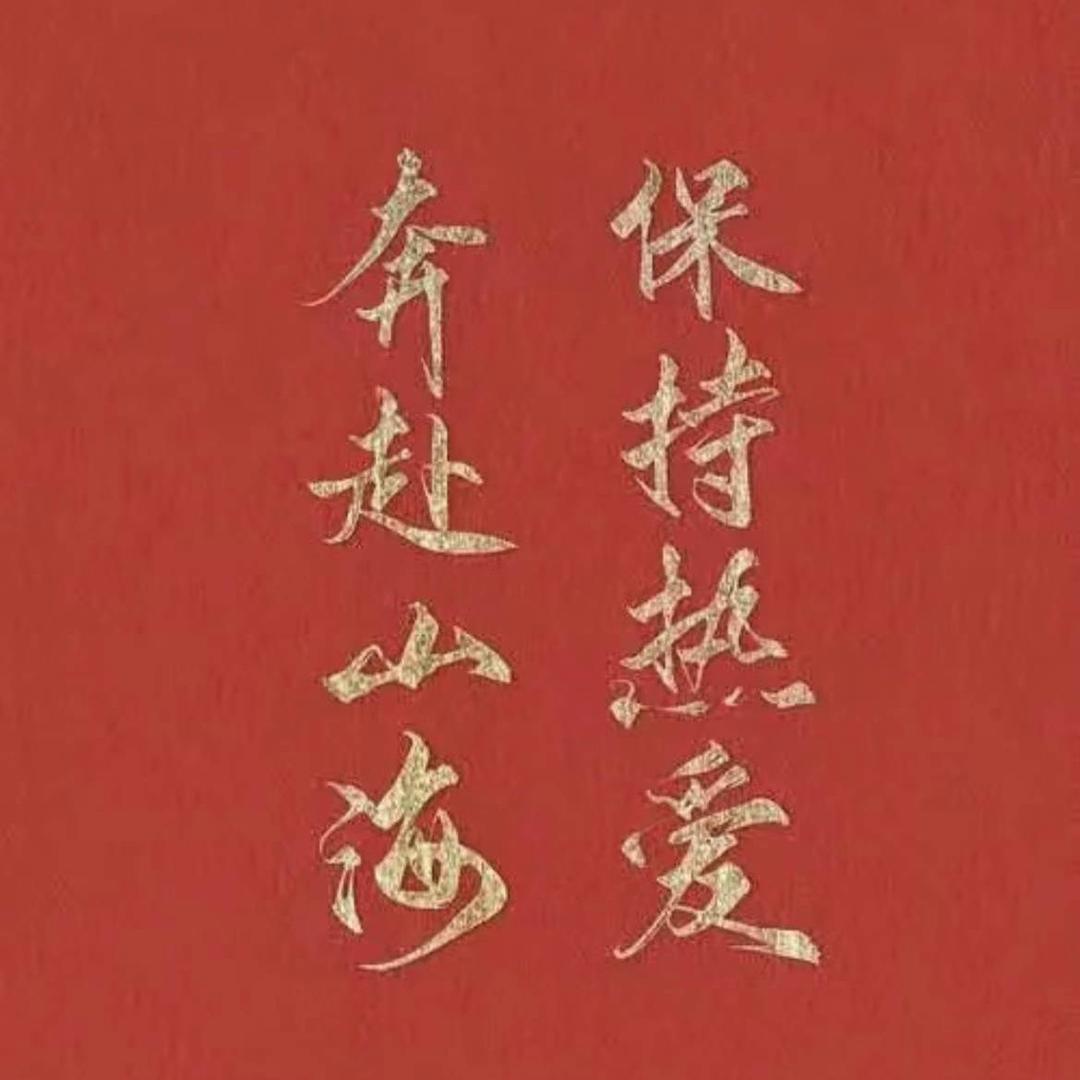 保持热爱
奔赴山海